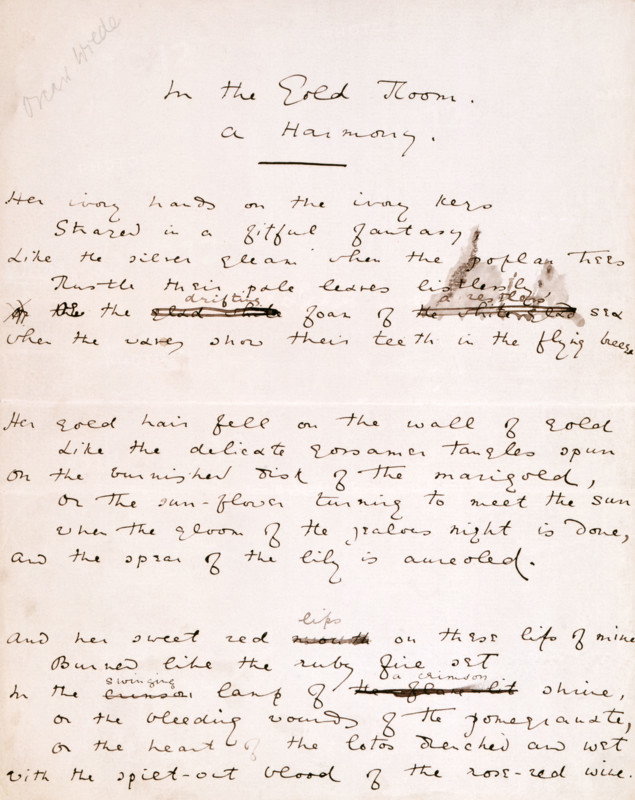 Oscar Wilde
In the Gold Room.
A Harmony.
Her ivory hands on the ivory keys
Strayed in a fitful fantasy
Like the silver gleam when the poplar trees
Rustle their pale leaves listlessly
drifting a restless
Or the glad white foam of the sea
When the waves show their teeth in the flying breeze
Her gold hair fell on the wall of gold
Like the delicate gossamer tangles spun
On the burnished disk of the marigold,
Or the sun-flower turning to meet the sun
When the gloom of the jealous night is done,
And the spear of the lily is aureoled.
lips
And her sweet red mouth on these lips of mine
Burned like the ruby fire set
swinging a crimson
In the crimson lamp of the flame lit shrine,
Or the bleeding wounds of the pomegranate,
Or the heart of the lotos drenched and wet
With the spilt-out blood of the rose-red wine.